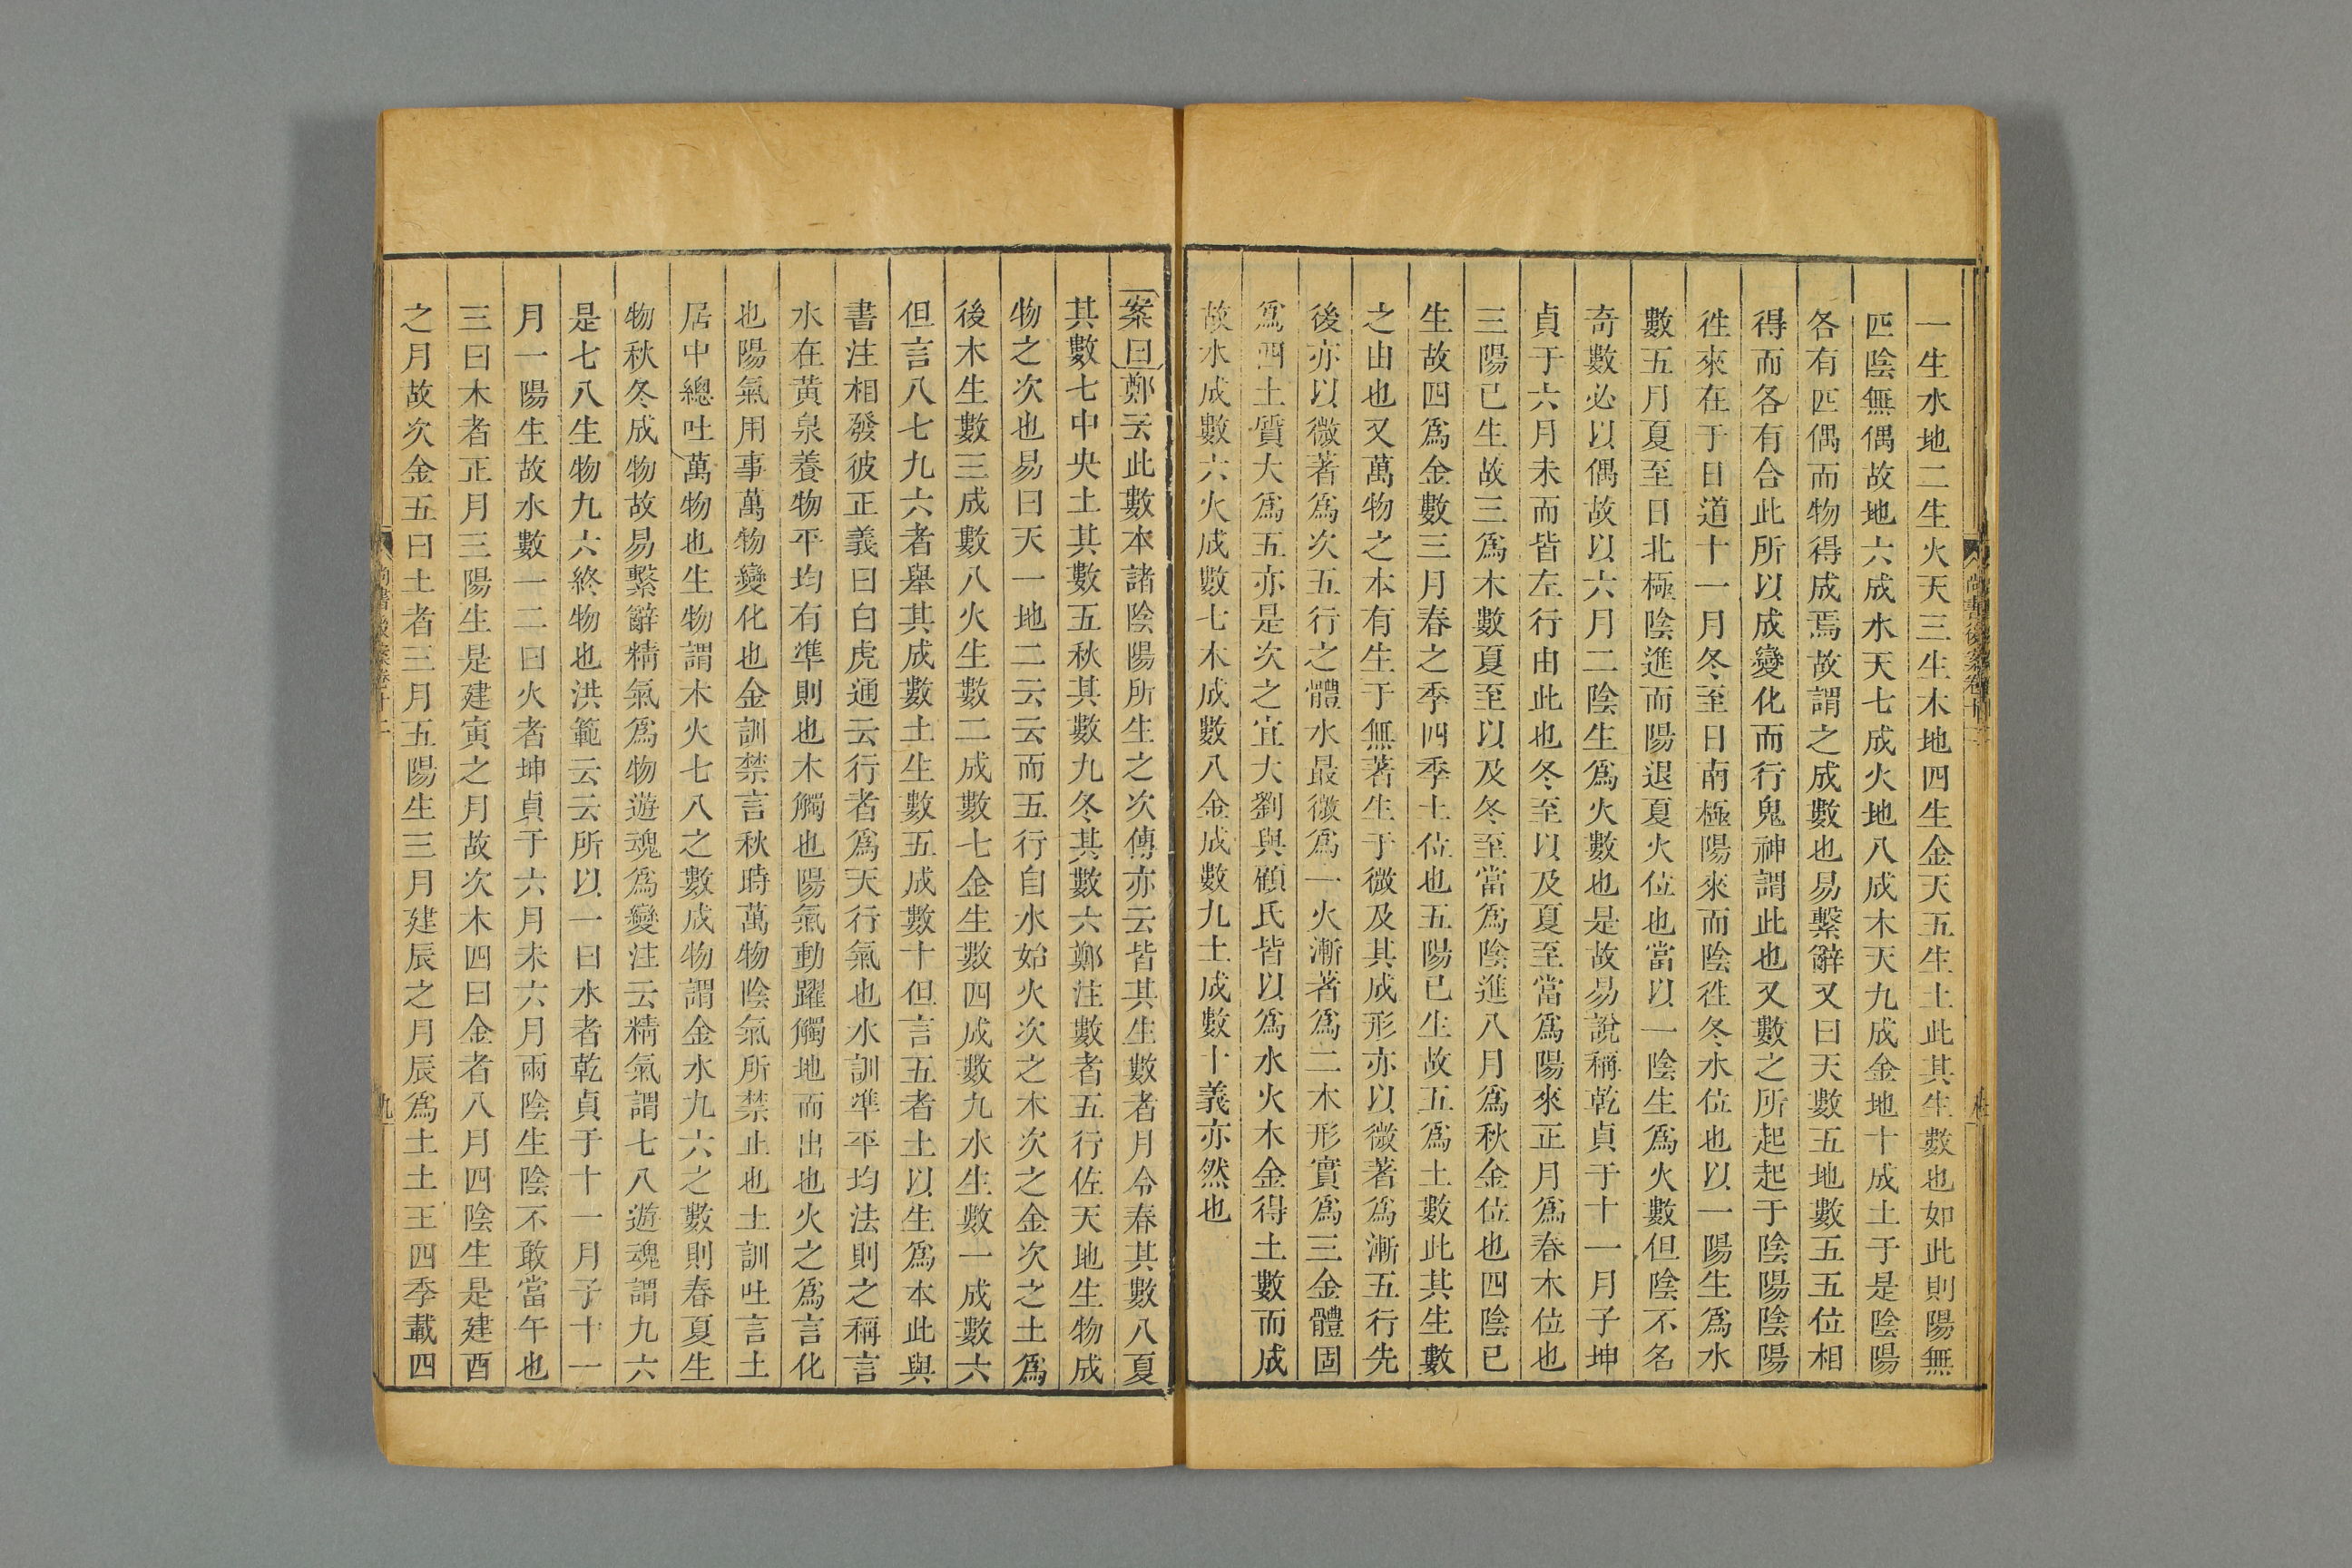 一生水地二生火天三生木地四生金天五生土此其生數也如此則陽無
匹陰無偶故地六成水天七成火地八成木天九成金地十成土于是陰陽
各有匹偶而物得成焉故謂之成數也易繫辭又曰天數五地數五五位相
得而各有合此所以成變化而行鬼神謂此也又數之所起起于陰陽陰陽
徃來在于日道十一月冬至日南極陽來而陰徃冬水位也以一陽生爲水
數五月夏至日北極陰進而陽退夏火位也當以一陰生爲火數但陰不名
奇數必以偶故以六月二陰生爲火數也是故易說稱乾貞于十一月子坤
貞于六月未而皆左行由此也冬至以及夏至當爲陽來正月爲春木位也
三陽已生故三爲木數夏至以及冬至當爲陰進八月爲秋金位也四陰已
生故四爲金數三月春之季四季土位也五陽已生故五爲土數此其生數
之由也又萬物之本有生于無著生于微及其成形亦以微著爲漸五行先
後亦以微著爲次五行之體水最微爲一火漸著爲二木形實爲三金體固
爲四土質大爲五亦是次之宜大劉與顧氏皆以爲水火木金得土數而成
故水成數六火成數七木成數八金成數九土成數十義亦然也
尚書後案卷十二
案曰鄭云此數本諸陰陽所生之次傳亦云皆其生數者月令春其數八夏
其數七中央土其數五秋其數九冬其數六鄭注數者五行佐天地生物成
物之次也易曰天一地二云云而五行自水始火次之木次之金次之土爲
後木生數三成數八火生數二成數七金生數四成數九水生數一成數六
但言八七九六者舉其成數土生數五成數十但言五者土以生爲本此與
書注相發彼正義曰白虎通云行者爲天行氣也水訓凖平均法則之稱言
水在黃泉養物平均有凖則也木觸也陽氣動躍觸地而出也火之爲言化
也陽氣用事萬物變化也金訓禁言秋時萬物陰氣所禁止也土訓吐言土
居中總吐萬物也生物謂木火七八之數成物謂金水九六之數則春夏生
物秋冬成物故易繫辭精氣爲物遊魂爲變注云精氣謂七八遊魂謂九六
是七八生物九六終物也洪範云云所以一曰水者乾貞于十一月子十一
月一陽生故水數一二曰火者坤貞于六月未六月兩陰生陰不敢當午也
三曰木者正月三陽生是建寅之月故次木四曰金者八月四陰生是建酉
之月故次金五曰土者三月五陽生三月建辰之月辰爲土土王四季載四
尚書後案卷十二
九